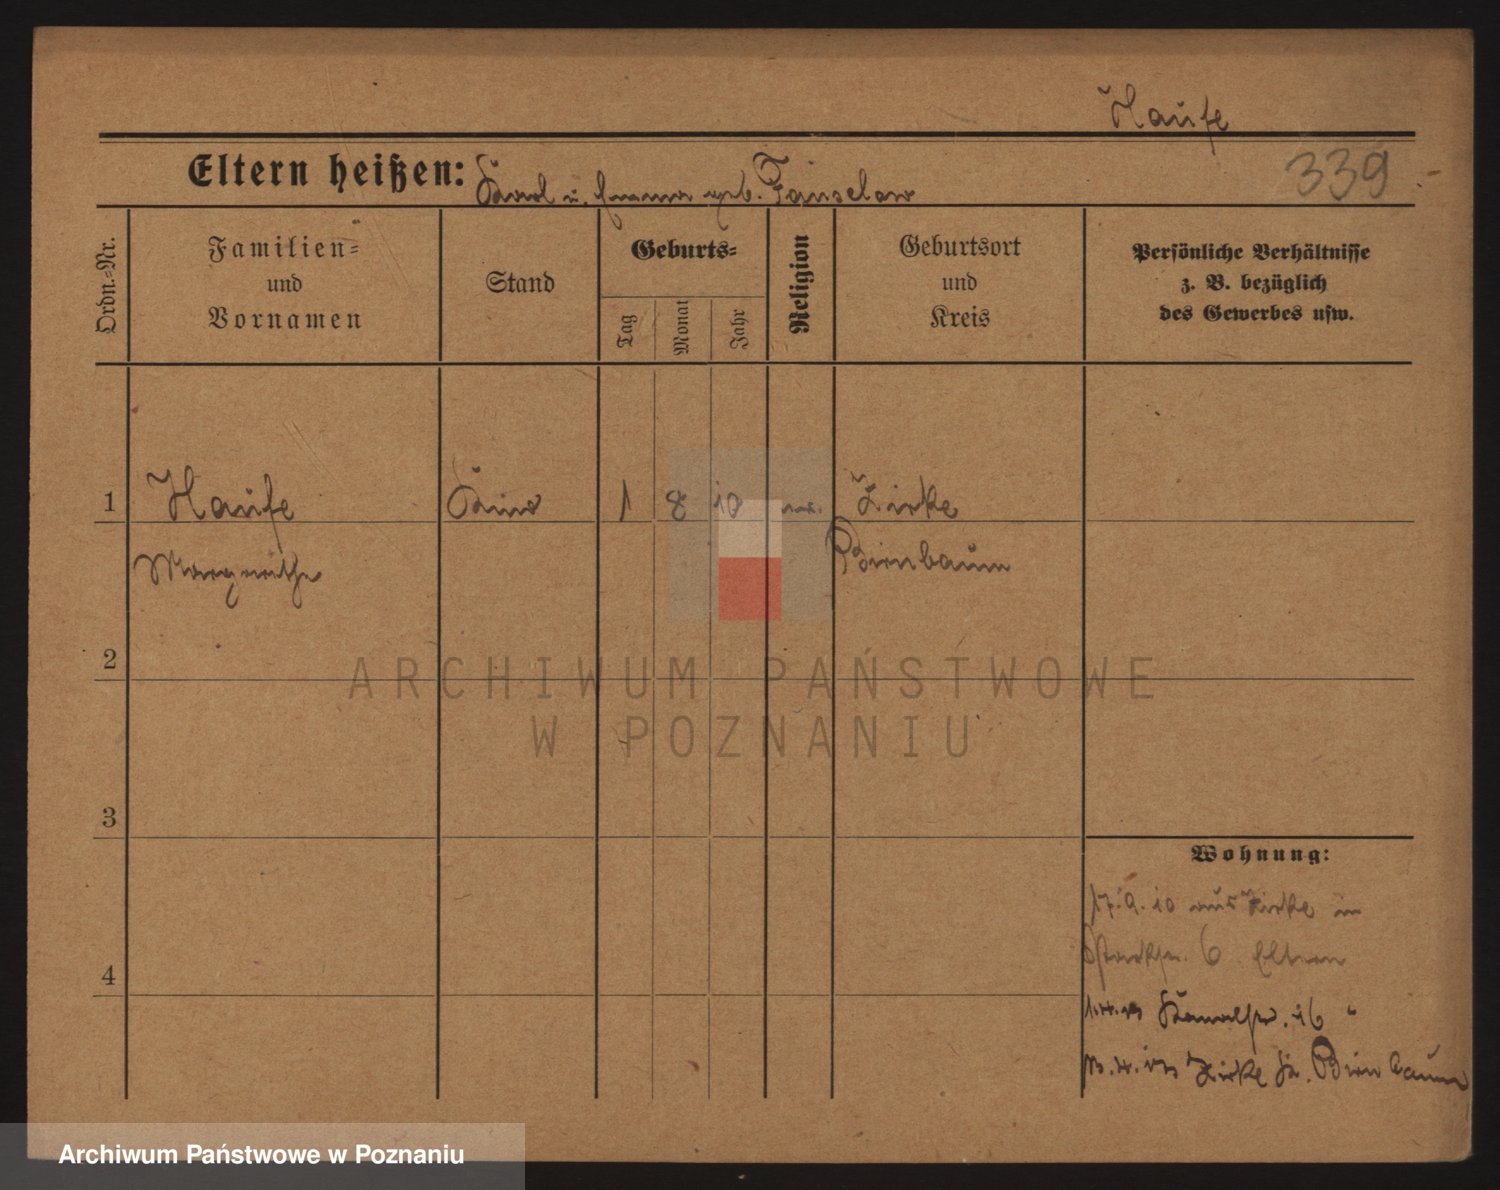 Haufe
Eltern heißen: Karl u. Emma geb. Fänselow
339
Ordn.-Nr.
Familien-
und
Vornamen
Stand
Geburts-
Tag
Monat
Jahr
Religion
Geburtsort
und
Kreis
Persönliche Verhältnisse
z. B. bezüglich
des Gewerbes usw.
1 Haufe Kind 1 8 10 Zirke
Margarethe Birnbaum
2
ARCHIWUM PAŃSTWOWE
W POZNANIU
3
Wohnung:
17.9.10 aus Zirke in
6 Eltern
4
Kanalstr. 16 "
Zirke Kr. Birnbaum
Archiwum Państwowe w Poznaniu